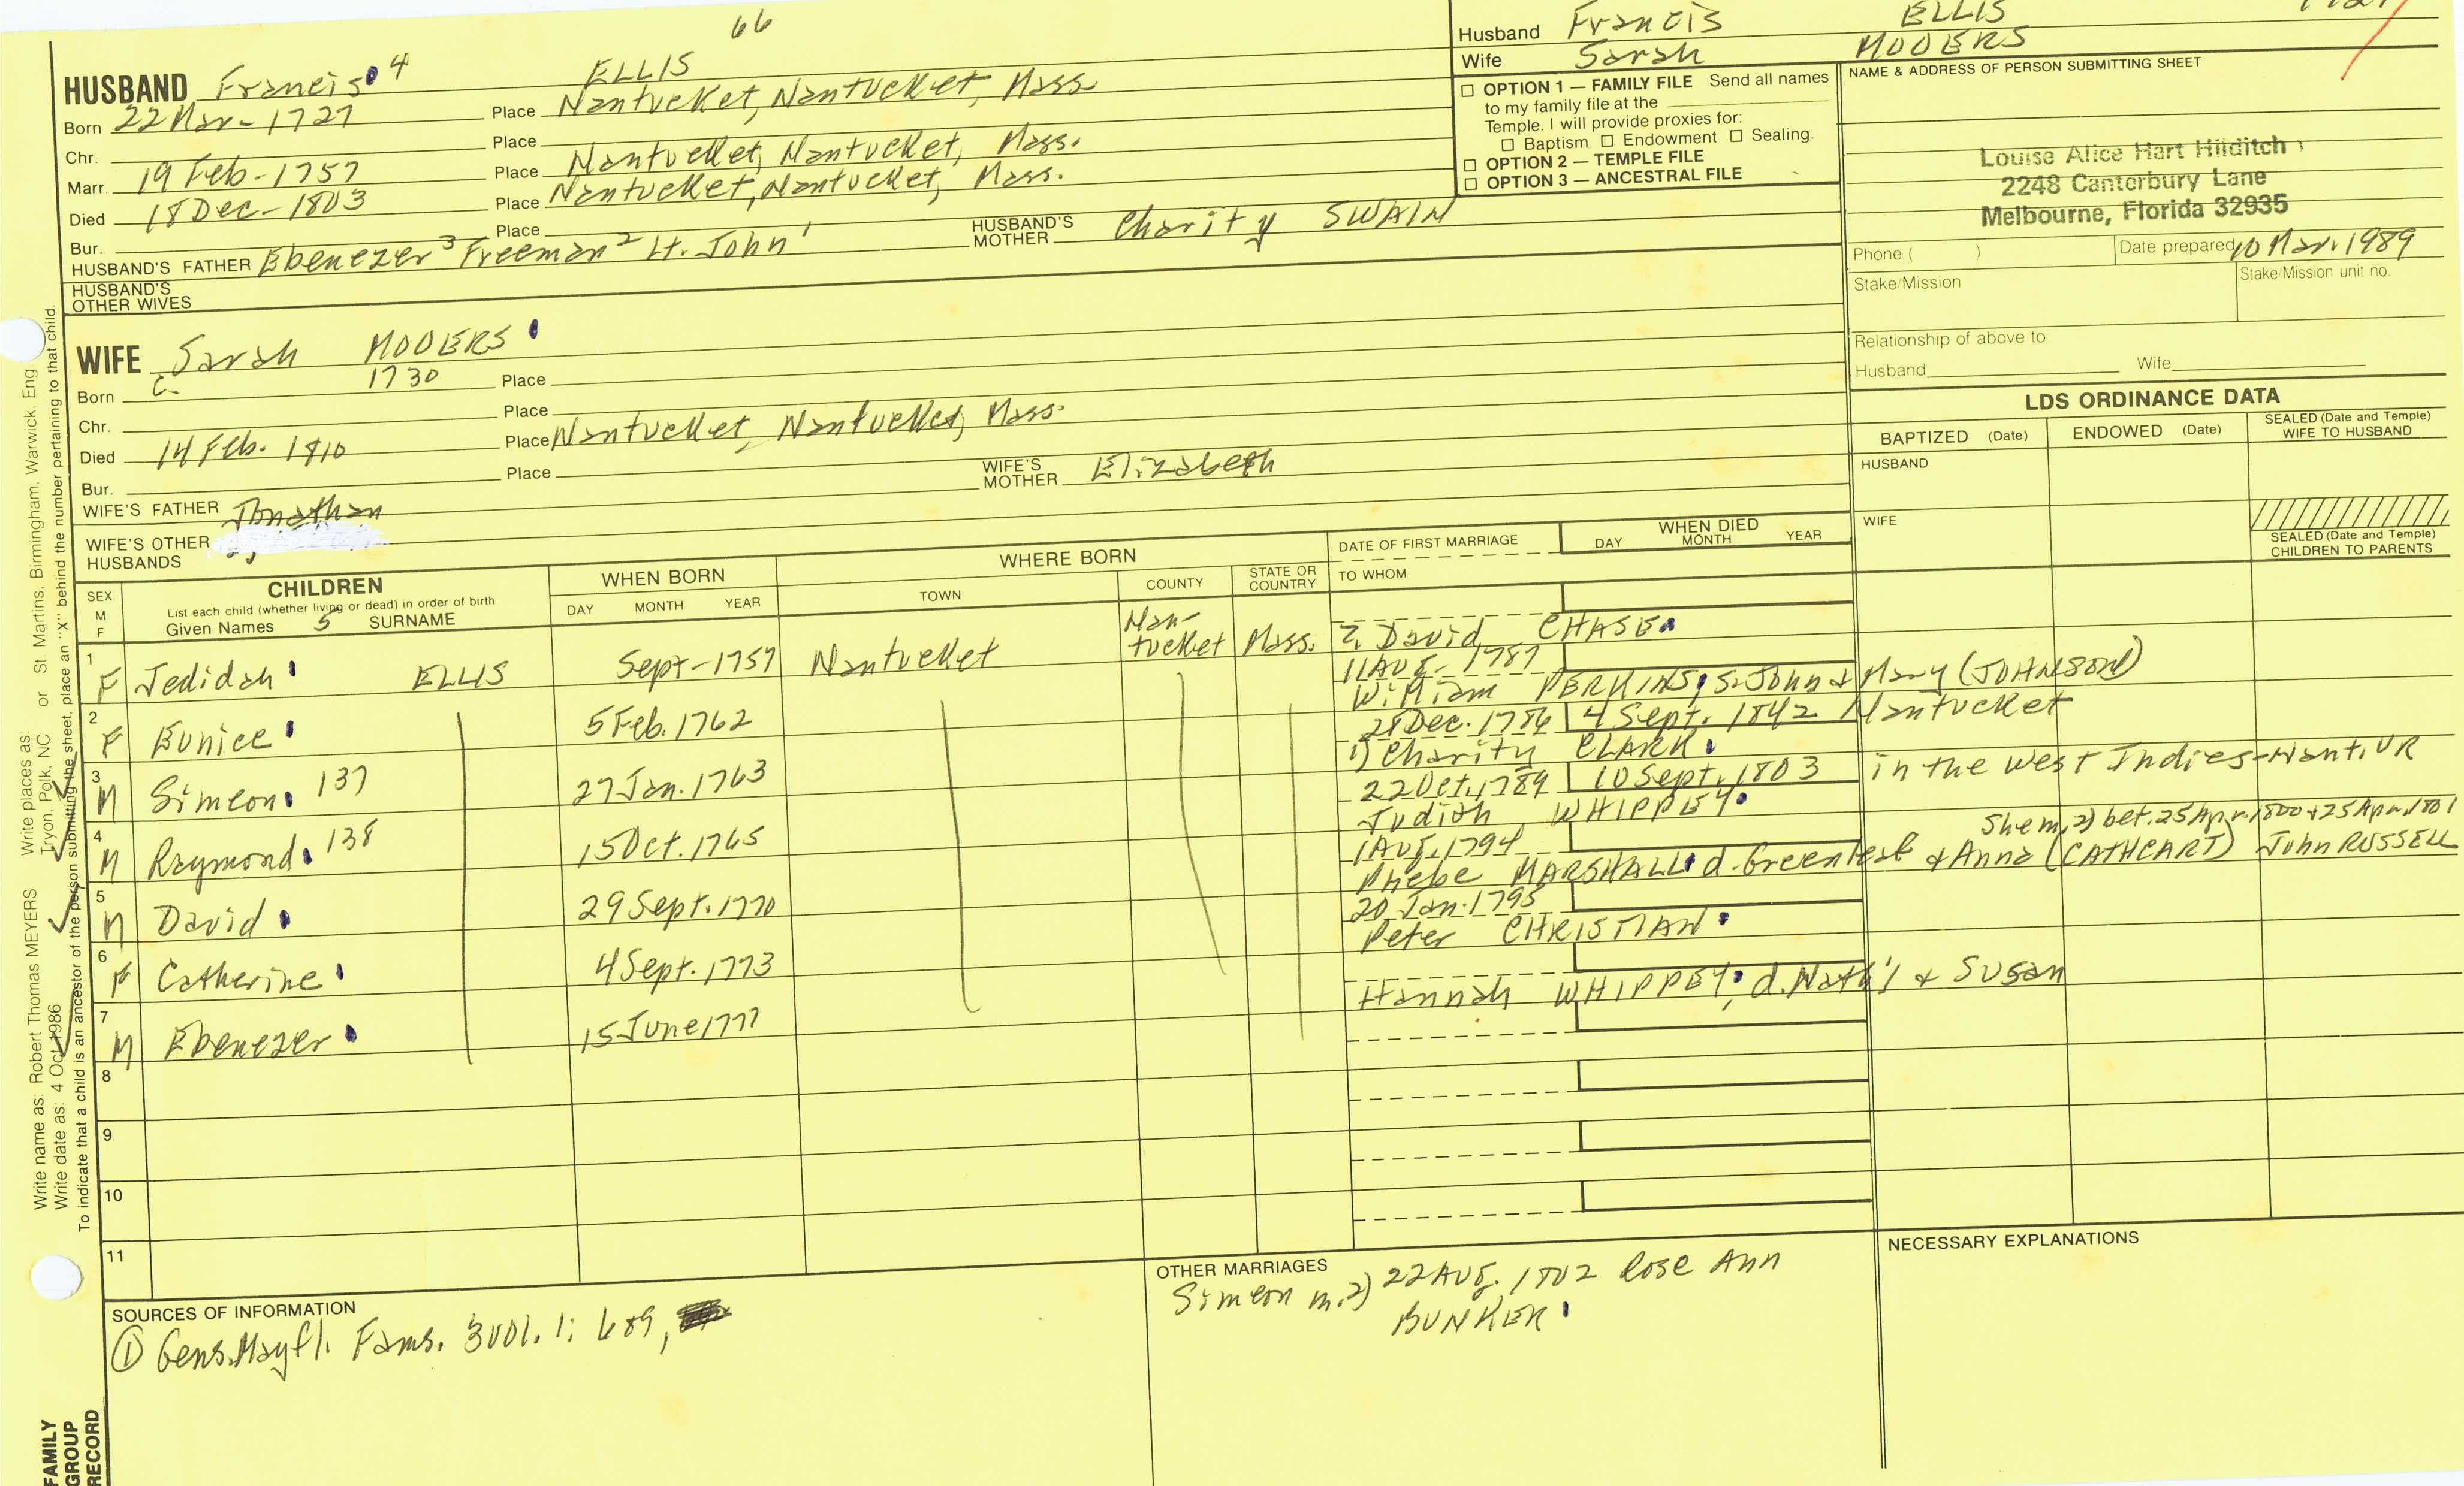 66
HUSBAND Francis 4 ELLIS
Born 22 Mar- 1727 Place Nantucket, Nantucket, Mass.
Chr. Place
Marr. 19 Feb-1757 Place Nantucket, Nantucket, Mass.
Died 18 Dec-1803 Place Nantucket, Nantucket, Mass.
Bur. Place
HUSBAND'S FATHER Ebenezer 3 Freeman 2 Lt. John 1 HUSBAND'S MOTHER Charity SWAIN
HUSBAND'S OTHER WIVES
WIFE Sarah MOOERS
Born c. 1730 Place
Chr. Place
Died 14 Feb. 1810 Place Nantucket, Nantucket, Mass.
Bur. Place
WIFE'S FATHER Jonathan WIFE'S MOTHER Elizabeth
WIFE'S OTHER HUSBANDS
Husband Francis ELLIS
Wife Sarah MOOERS
OPTION 1 — FAMILY FILE Send all names
to my family file at the
Temple. I will provide proxies for:
Baptism Endowment Sealing.
OPTION 2 — TEMPLE FILE
OPTION 3 — ANCESTRAL FILE
NAME & ADDRESS OF PERSON SUBMITTING SHEET
Louise Alice Hart Hilditch
2248 Canterbury Lane
Melbourne, Florida 32935
Phone ( ) Date prepared 10 Mar. 1989
Stake/Mission Stake/Mission unit no.
Relationship of above to
Husband Wife
LDS ORDINANCE DATA
BAPTIZED (Date) ENDOWED (Date) SEALED (Date and Temple) WIFE TO HUSBAND
HUSBAND
WIFE
SEALED (Date and Temple) CHILDREN TO PARENTS
SEX M F
CHILDREN
List each child (whether living or dead) in order of birth
Given Names 5 SURNAME
WHEN BORN
DAY MONTH YEAR
WHERE BORN
TOWN COUNTY STATE OR COUNTRY
DATE OF FIRST MARRIAGE
TO WHOM
WHEN DIED
DAY MONTH YEAR
1 F Jedidah ELLIS Sept-1757 Nantucket Nan-tucket Mass. ?. David CHASE
2 F Eunice 5 Feb. 1762 11 Aug-1787
William PERKINS, s. John & Mary (JOHNSON)
3 M Simeon 137 27 Jan. 1763 28 Dec. 1786 4 Sept. 1842 Nantucket
1) Charity CLARK
4 M Raymond 138 15 Oct. 1765 22 Oct. 1789 10 Sept. 1803 in the West Indies-Nant. VR
Judith WHIPPEY She m. 2) bet. 25 Apr. 1800 & 25 Apr. 1801 John RUSSELL
5 M David 29 Sept. 1770 1 Aug. 1794
Phebe MARSHALL d. Greenleaf & Anna (CATHCART)
6 F Catherine 4 Sept. 1773 20 Jan. 1795
Peter CHRISTIAN
7 M Ebenezer 15 June 1777
Hannah WHIPPEY, d. Nath'l & Susan
8
9
10
11
SOURCES OF INFORMATION
① Gens. Mayfl. Fams. 3 vol. 1: 689,
OTHER MARRIAGES
Simeon m. 2) 22 Aug. 1802 Rose Ann
BUNKER
NECESSARY EXPLANATIONS
Write name as: Robert Thomas MEYERS Write places as: Tryon, Polk, NC or St. Martins, Birmingham, Warwick, Eng
Write date as: 4 Oct 1986
To indicate that a child is an ancestor of the person submitting the sheet, place an "X" behind the number pertaining to that child.
FAMILY
GROUP
RECORD